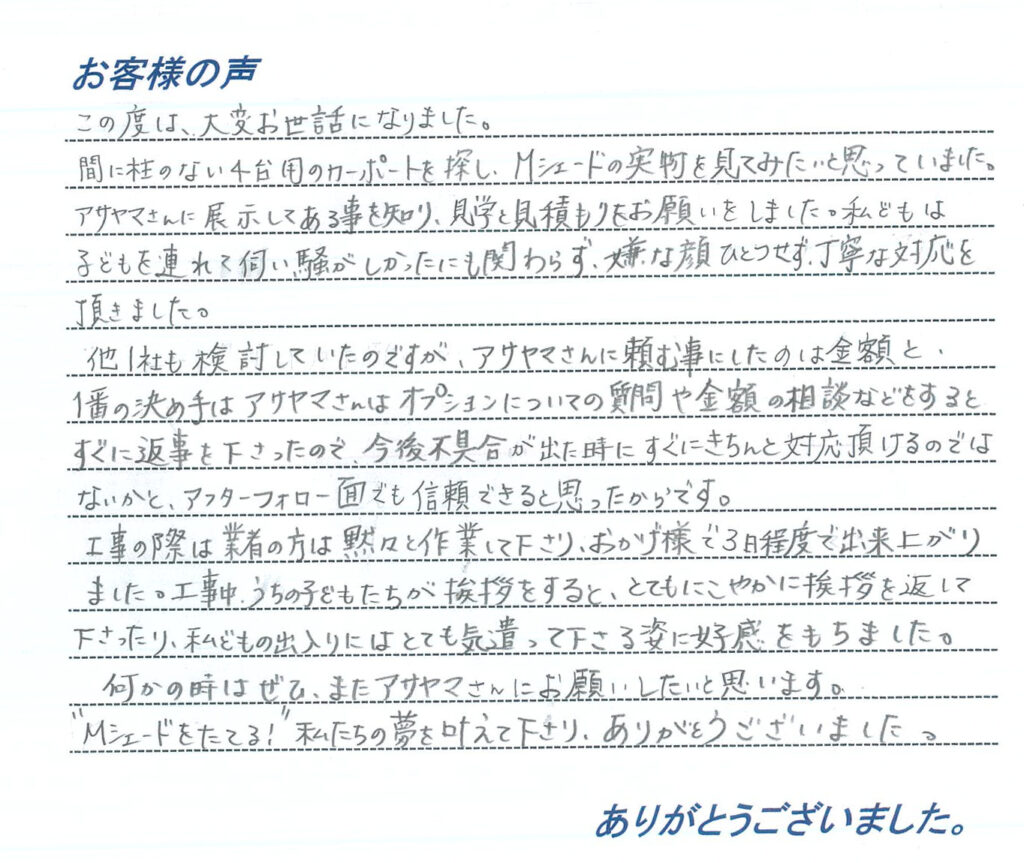 お客様の声
この度は、大変お世話になりました。
間に柱のない4台用のカーポートを探し、Mシェードの実物を見てみたいと思っていました。
アサヤマさんに展示してある事を知り、見学と見積もりをお願いをしました。私どもは
子どもを連れて伺い騒がしかったにも関わらず、嫌な顔ひとつせず、丁寧な対応を
頂きました。
他1社も検討していたのですが、アサヤマさんに頼む事にしたのは金額と、
1番の決め手はアサヤマさんはオプションについての質問や金額の相談などをすると
すぐに返事を下さったので、今後不具合が出た時にすぐにきちんと対応頂けるのでは
ないかと、アフターフォロー面でも信頼できると思ったからです。
工事の際は業者の方は黙々と作業して下さり、おかげ様で3日程度で出来上がり
ました。工事中、うちの子どもたちが挨拶をすると、とてもにこやかに挨拶を返して
下さったり、私どもの出入りにはとても気遣って下さる姿に好感をもちました。
何かの時はぜひ、またアサヤマさんにお願いしたいと思います。
"Mシェードをたてる!"私たちの夢を叶えて下さり、ありがとうございました。
ありがとうございました。